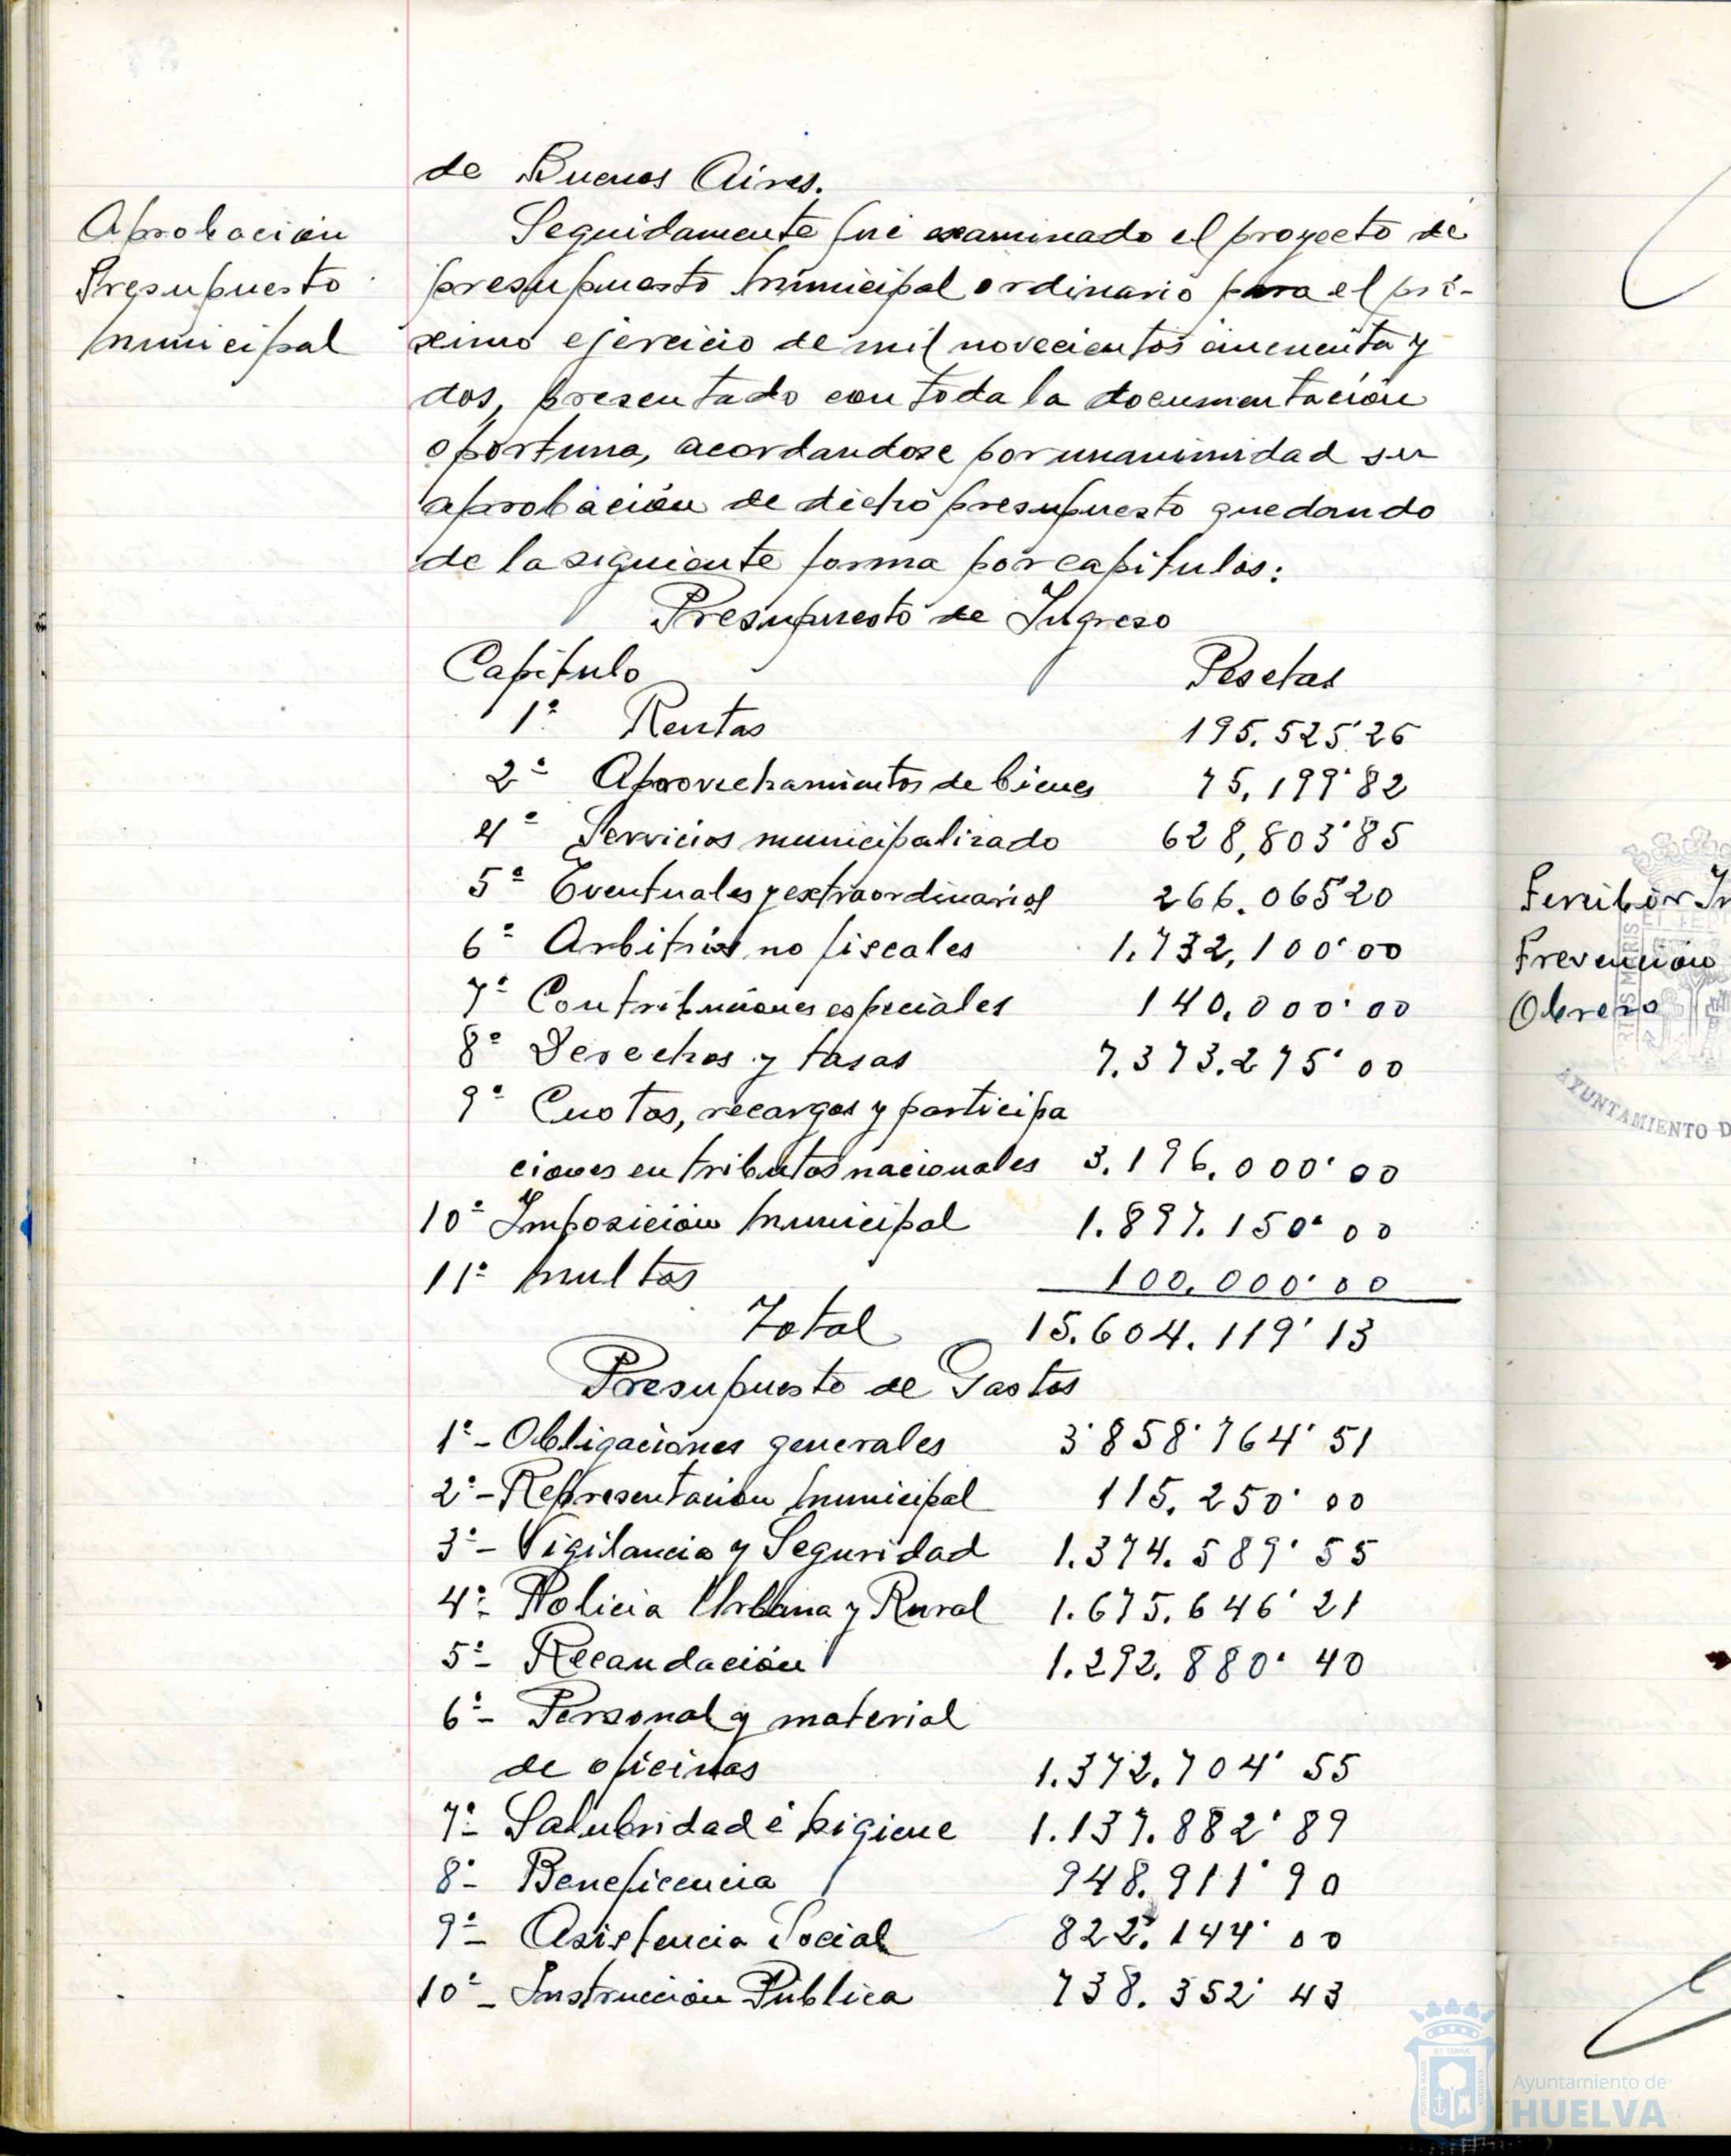 Aprobación
Presupuesto
municipal
de Buenos Aires.
Seguidamente fué examinado el proyecto de
presupuesto municipal ordinario para el pró-
ximo ejercicio de mil novecientos cincuenta y
dos, presentado con toda la documentación
oportuna, acordandose por unanimidad su
aprobación de dicho presupuesto quedando
de la siguiente forma por capitulos:
Presupuesto de Ingreso
Capítulo Pesetas
1º Rentas 195.525'26
2º Aprovechamientos de bienes 75.199'82
4º Servicios municipalizado 628,803'85
5º Eventuales y extraordinarios 266.065'20
6º Arbitrios no fiscales 1.732,100'00
7º Contribuciones especiales 140.000'00
8º Derechos y tasas 7.373.275'00
9º Cuotas, recargos y participa
ciones en tributos nacionales 3.196.000'00
10º Imposición municipal 1.897.150'00
11º multas 100.000'00
Total 15.604.119'13
Presupuesto de Gastos
1º - Obligaciones generales 3'858'764'51
2º - Representación municipal 115.250'00
3º - Vigilancia y Seguridad 1.374.589'55
4º - Policia Urbana y Rural 1.675.646'21
5º - Recaudación 1.292.880'40
6º - Personal y material
de oficinas 1.372.704'55
7º - Salubridad é higiene 1.137.882'89
8º - Beneficencia 948.911'90
9º - Asistencia Social 822.144'00
10º - Instrucción Pública 738.352'43
Prevención
Obrero
AYUNTAMIENTO D
Ayuntamiento de
HUELVA